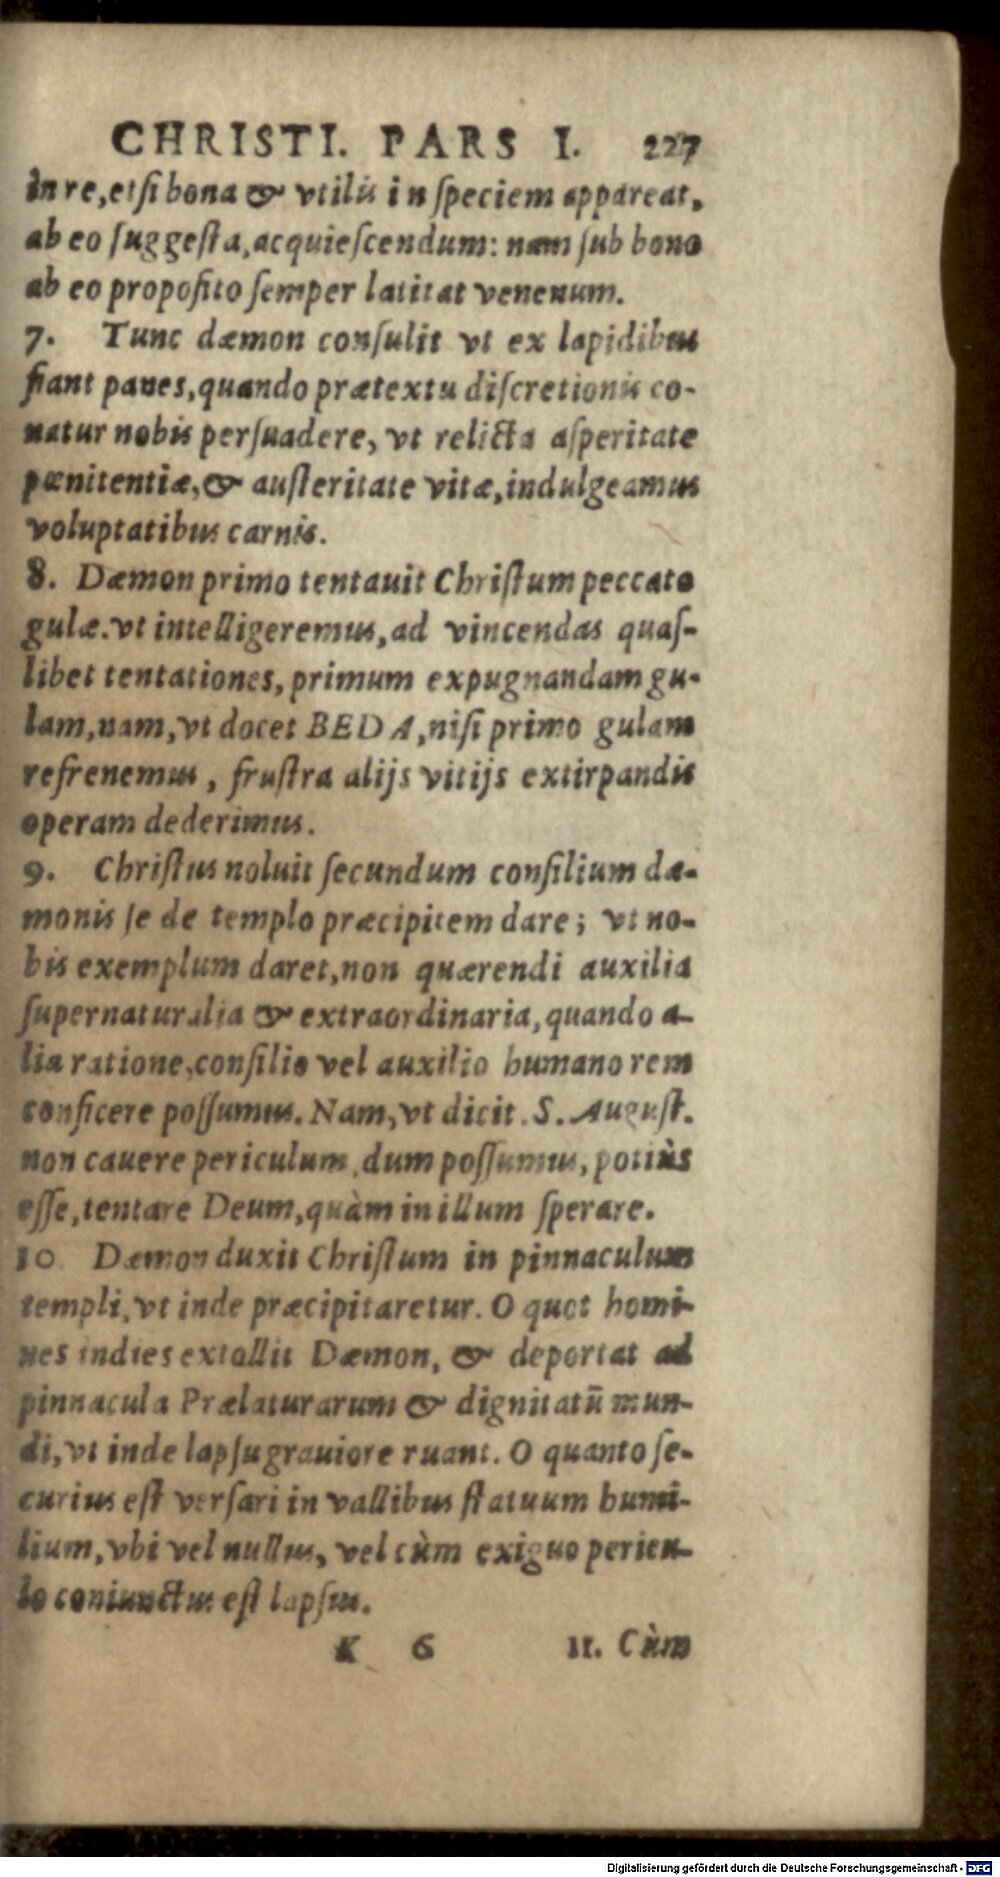 CHRISTI. PARS I. 227
in re, etsi bona & vtilis in speciem appareat,
ab eo suggesta, acquiescendum: nam sub bono
ab eo proposito semper latitat venenum.
7. Tunc dæmon consulit vt ex lapidibus
fiant panes, quando prætextu discretionis co-
natur nobis persuadere, vt relicta asperitate
pœnitentiæ, & austeritate vitæ, indulgeamus
voluptatibus carnis.
8. Dæmon primo tentauit Christum peccato
gulæ. vt intelligeremus, ad vincendas quas-
libet tentationes, primum expugnandam gu-
lam, nam, vt docet BEDA, nisi primo gulam
refrenemus, frustra alijs vitijs extirpandis
operam dederimus.
9. Christus noluit secundum consilium dæ-
monis se de templo præcipitem dare; vt no-
bis exemplum daret, non quærendi auxilia
supernaturalia & extraordinaria, quando a-
lia ratione, consilio vel auxilio humano rem
conficere possumus. Nam, vt dicit S. August.
non cauere periculum, dum possumus, potiùs
esse, tentare Deum, quàm in illum sperare.
10 Dæmon duxit Christum in pinnaculum
templi, vt inde præcipitaretur. O quot homi-
nes indies extollit Dæmon, & deportat ad
pinnacula Prælaturarum & dignitatū mun-
di, vt inde lapsu grauiore ruant. O quanto se-
curius est versari in vallibus statuum humi-
lium, vbi vel nullus, vel cùm exiguo pericu-
lo coniunctus est lapsus.
K 6 11. Cùm
Digitalisierung gefördert durch die Deutsche Forschungsgemeinschaft - DFG